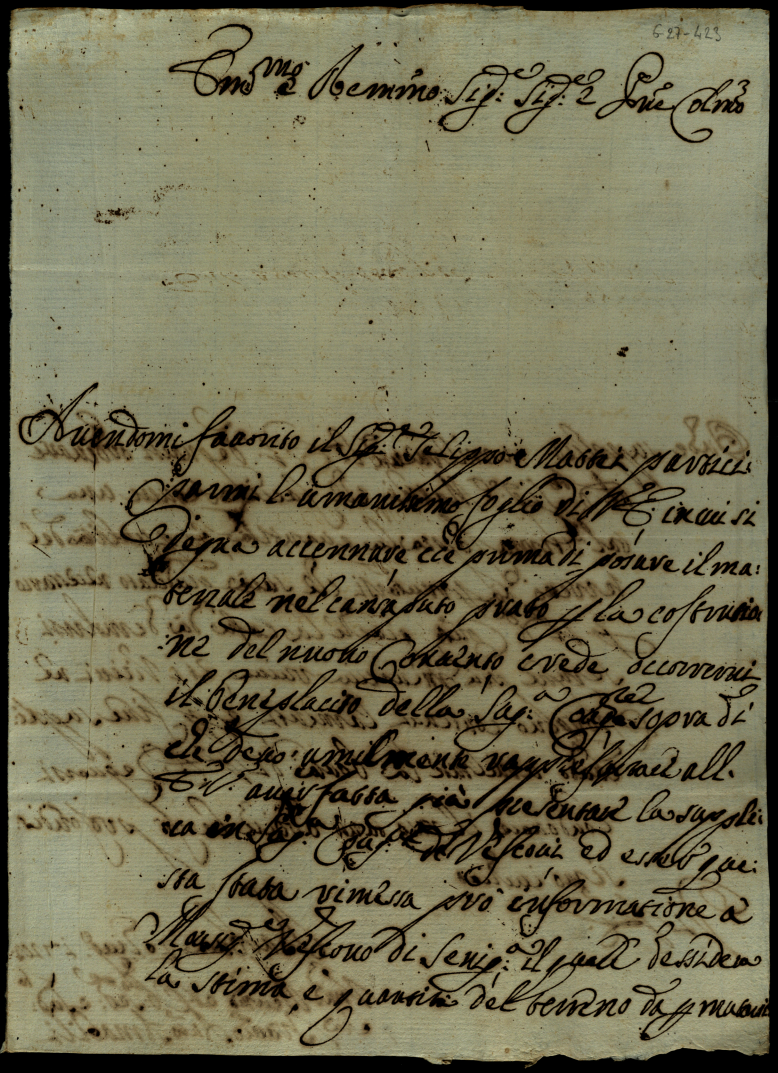 627-423
Em.mo e Rem.mo Sig.re Sig.re e P.ne Col.mo
Avendomi favorito il Sig.re Felippo Massei partici:
parmi l'umanissimo foglio di V.E. in cui si
degna accennare che prima di posare il ma:
teriale nel careggiato prato p la costruzio
ne del nuovo Convento crede occorrervi
il beneplacito della Sag.a Cong.ne sopra di
che devo umilmente rappresentare all.
E.V. aver fatta già presentare la suppli:
ca in Sag. Cong.ne de Vescovi ed esser que:
sta stata rimessa pro informatione a
Monsig.re Vescovo di Senig.a il quale dessidera
la stima, e quantità del terreno da